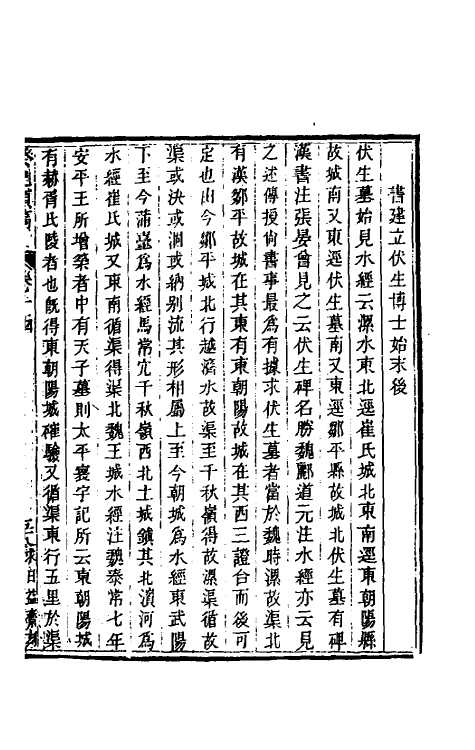 書建立伏生博士始末後
伏生墓始見水經云漯水東北逕崔氏城北東南逕東朝陽縣
故城南又東逕伏生墓南又東逕鄒平縣故城北伏生墓有碑
漢書注張晏曾見之云伏生碑名勝魏酈道元注水經亦云見
之述傳授尚書事最爲有據求伏生墓者當於魏時漯故渠北
有漢鄒平故城在其東有東朝陽故城在其西三證合而後可
定也由今鄒平城北行越濟水故渠至千秋嶺得故漯渠循故
渠或決或涸或納別流其形相屬上至今朝城爲水經東武陽
下至今蒲臺爲水經馬常坈千秋嶺西北土城鎮其北濱河爲
水經崔氏城又東南循渠得渠北魏王城水經注魏泰常七年
安平王所增築者中有天子墓則太平寰宇記所云東朝陽城
有赫胥氏陵者也旣得東朝陽城確驗又循渠東行五里於渠